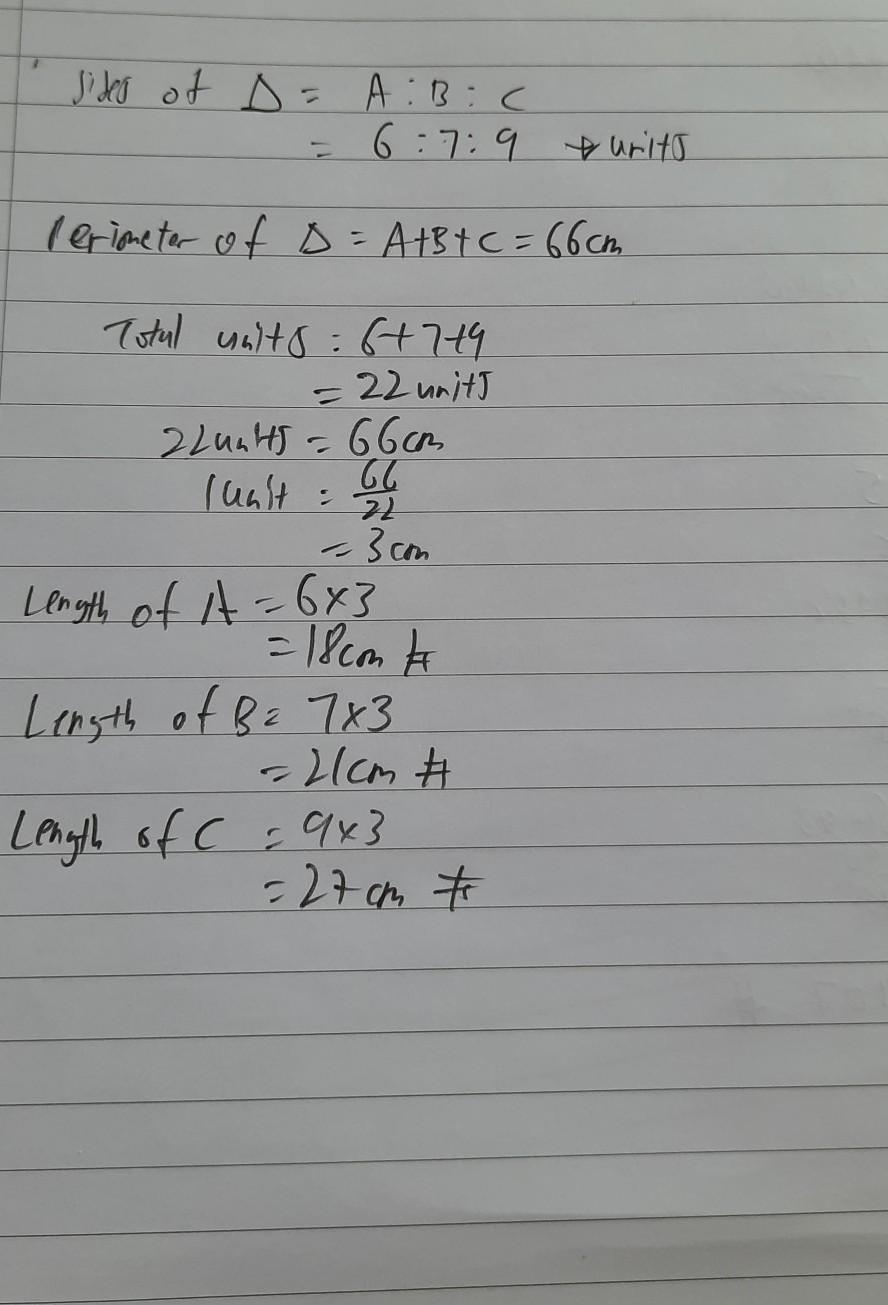 Sides of Δ = A : B : C
= 6 : 7 : 9 → units
Perimeter of Δ = A+B+C = 66cm
Total units : 6+7+9
= 22 units
22 units = 66cm
1 unit : 66/22
= 3cm
Length of A = 6×3
= 18cm #
Length of B = 7×3
= 21cm #
Length of C = 9×3
= 27cm #